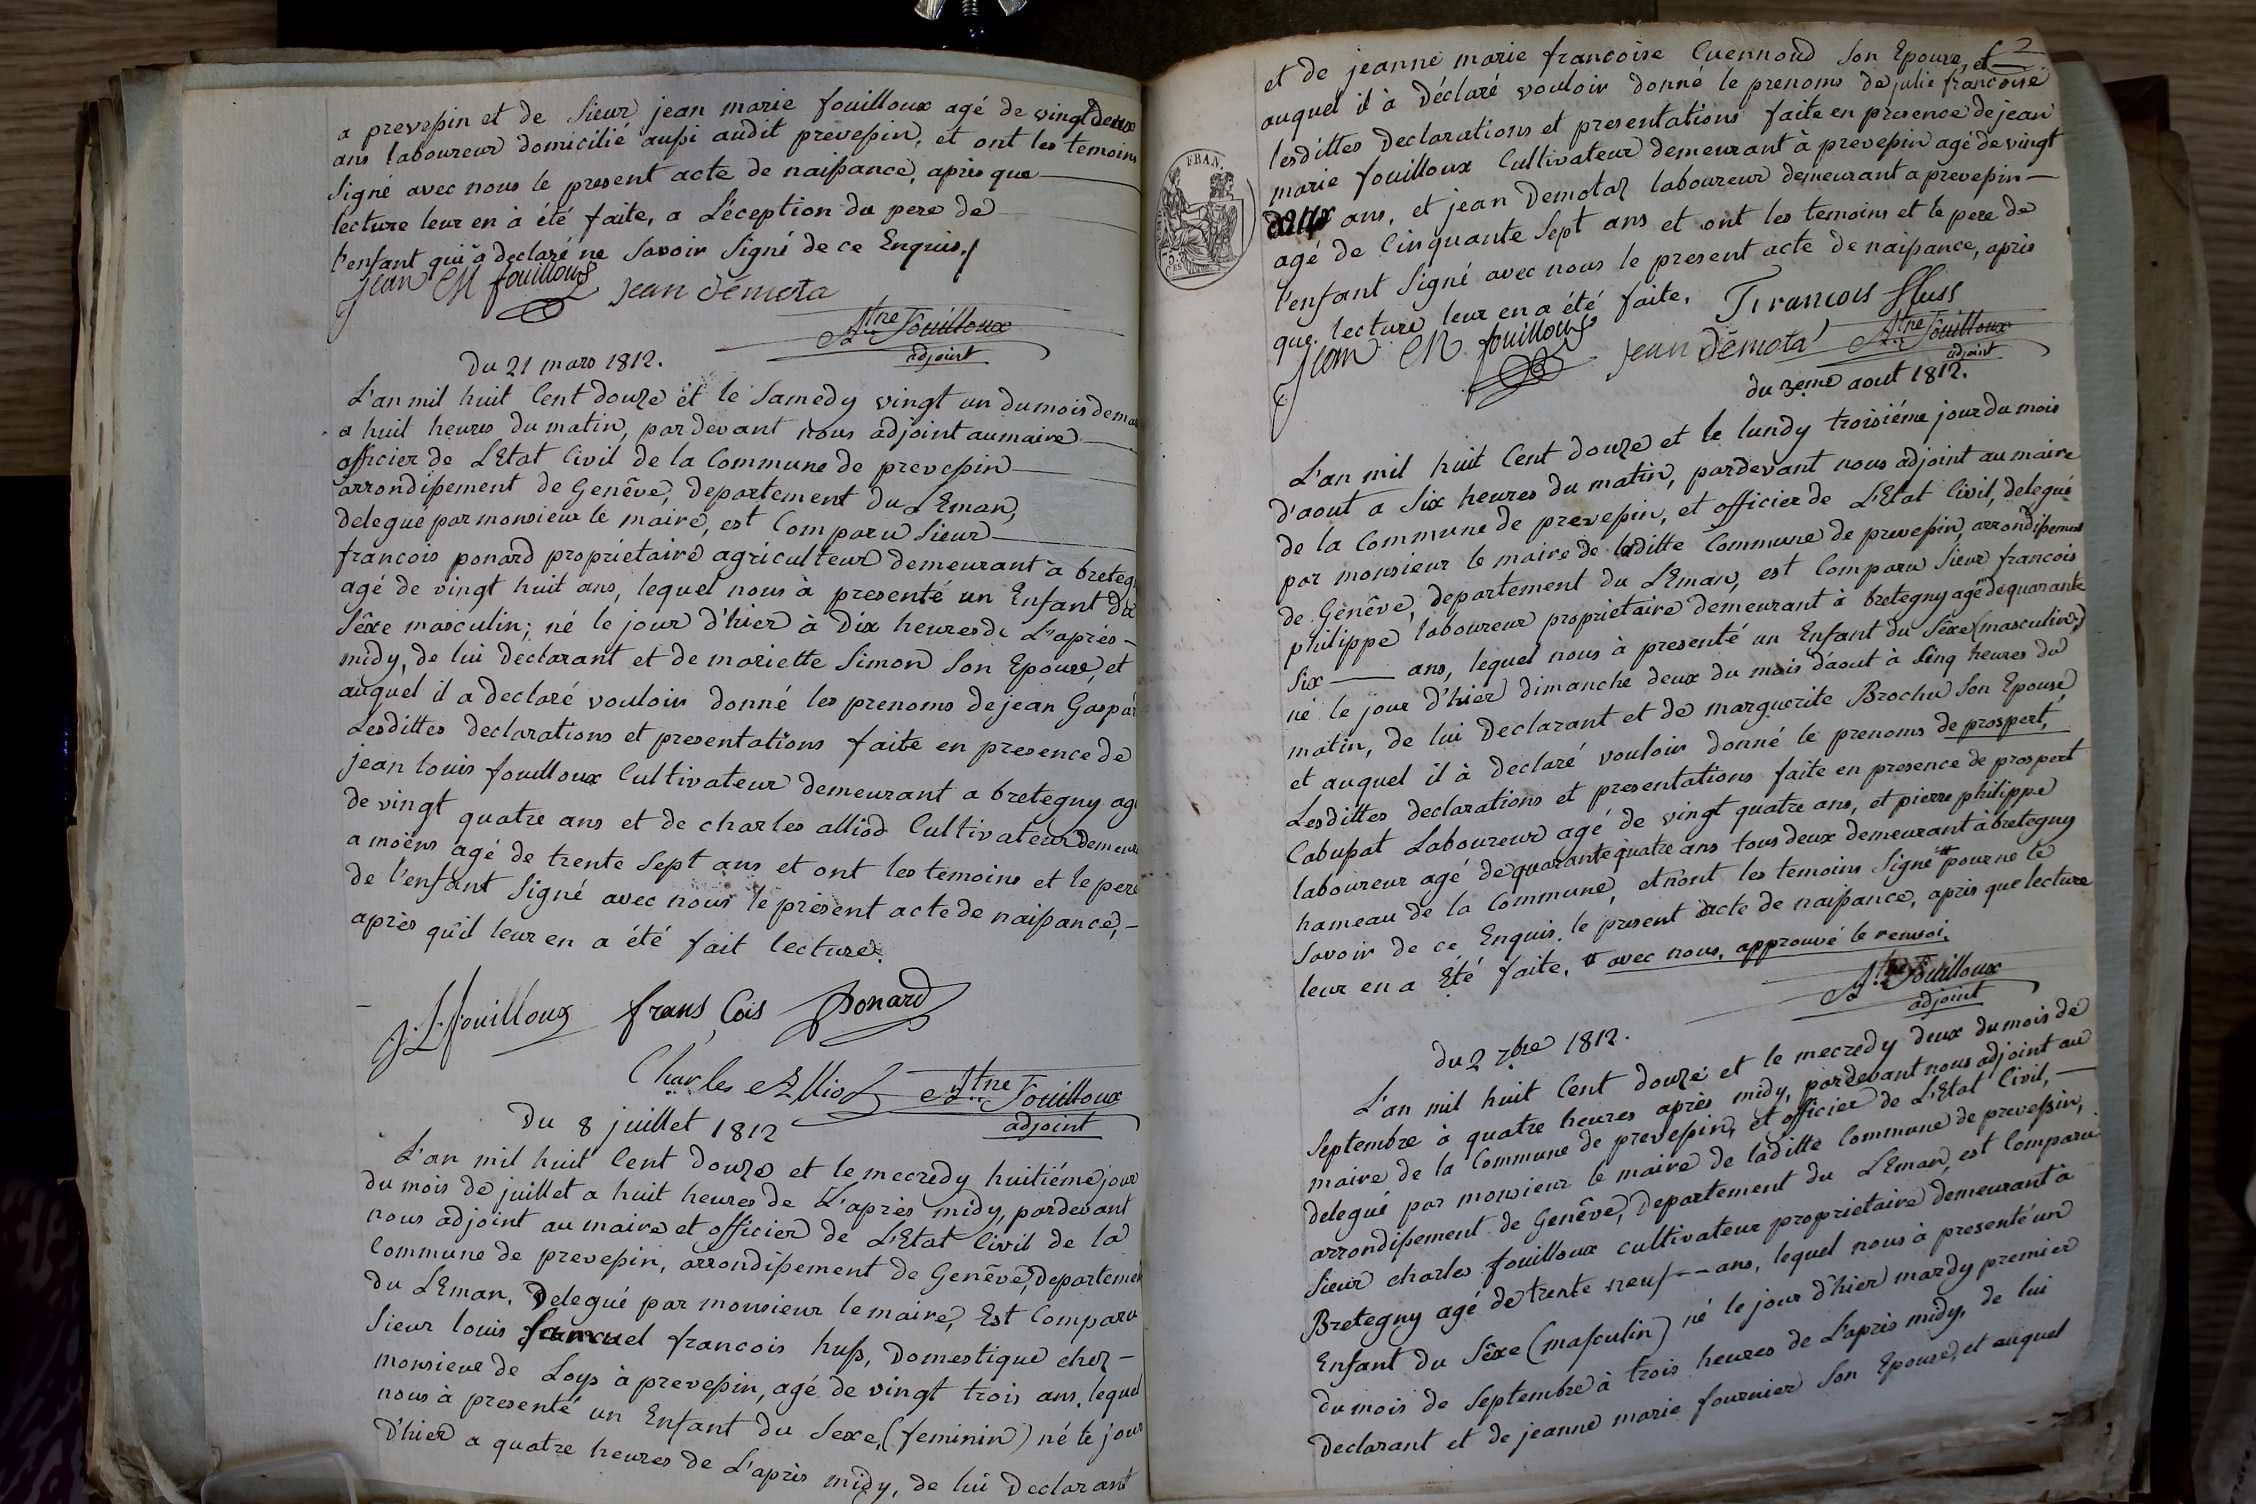 a prevessin et de Sieur jean marie fouilloux agé de vingt deux
ans laboureur domicilié aussi audit prevessin, et ont les temoins
Signé avec nous le present acte de naissance, après que
lecture leur en à été faite, a L'éception du pere de
l'enfant qui a declaré ne Savoir Signé de ce Enquis./
jean M fouilloux Jean démota
Fouilloux
adjoint
Du 21 mars 1812.
L'an mil huit Cent douze et le Samedy vingt un du mois de mar
a huit heures du matin, pardevant nous adjoint au maire
officier de L'Etat Civil de la Commune de prevessin
arrondissement de Genêve, departement du LEman,
delegué par monsieur le maire, est Comparu Sieur
francois ponard proprietaire agriculteur demeurant a breteg
agé de vingt huit ans, lequel nous à presenté un Enfant du
Sêxe masculin; né le jour d'hier à Dix heures de L'après-
midy, de lui Declarant et de mariette Simon Son Epouse, et
auquel il a declaré vouloir donné les prenoms de jean Gaspar
Lesdittes declarations et presentations faite en presence de
jean louis fouilloux Cultivateur demeurant a bretegny ag
de vingt quatre ans et de charles alliod Cultivateur demeur
a moëns agé de trente Sept ans et ont les temoins et le pere
de l'enfant Signé avec nous le présent acte de naissance, -
après qu'il leur en a été fait lecture.
J. L. fouilloux frans Cois Ponard
Charles Alliod Fouilloux
adjoint
Du 8 juillet 1812
L'an mil huit Cent Douze et le mecredy huitiéme jour
du mois de juillet a huit heures de L'après midy, pardevant
nous adjoint au maire et officier de L'Etat Civil de la
Commune de prevessin, arrondissement de Genêve, departemen
du LEman, Delegué par monsieur le maire, Est Comparu
Sieur louis Samuel francois huss, Domestique chez -
monsieur de Loys à prevessin, agé de vingt trois ans, lequel
nous à presenté un Enfant du Sexe, (feminin) né le jour
D'hier a quatre heures de L'après midy, de lui Declarant
2
et de jeanne marie francoise Cuennoud Son Epouse, et
auquel il à Déclaré vouloir donné le prenoms de julie francoise
lesdittes Declarations et presentations faite en presence de jean
marie fouilloux Cultivateur demeurant à prevessin agé de vingt
FRAN.
deux ans, et jean Demotaz laboureur demeurant a prevessin —
agé de Cinquante Sept ans et ont les temoins et le pere de
l'enfant Signé avec nous le present acte de naissance, après
que lecture leur en a été faite. Francois Huss
Jean M fouilloux Jean démota Fouilloux
adjoint
du 3eme aout 1812.
L'an mil huit Cent douze et le lundy troisiéme jour du mois
d'aout a Six heures du matin, pardevant nous adjoint au maire
de la Commune de prevessin, et officier de L'Etat Civil, delegué
par monsieur le maire de laditte Commune de prevessin, arrondissement
de Genêve, departement du LEman, est Comparu Sieur francois
philippe laboureur proprietaire demeurant à bretegny agé de quarante
Six — ans, lequel nous à presenté un Enfant du Sêxe (masculin)
né le jour d'hier dimanche deux du mois d'aout à Cinq heures du
matin, de lui Declarant et de marguerite Brochu Son Epouse,
et auquel il à declaré vouloir donné le prenoms de prospert,
Lesdittes declarations et presentations faite en presence de prospert
Cabussat Laboureur agé de vingt quatre ans, et pierre philippe
laboureur agé de quarante quatre ans tous deux demeurant à bretegny
hameau de la Commune, et n'ont les temoins Signé # pour ne le
Savoir de ce Enquis. le present acte de naissance, après que lecture
leur en a Eté faite, # avec nous, approuvé le renvoi.
Fouilloux
adjoint
du 2 7bre 1812.
L'an mil huit Cent douze et le mecredy deux du mois de
Septembre à quatre heures après midy, pardevant nous adjoint au
maire de la Commune de prevessin, et officier de L'Etat Civil, —
delegué par monsieur le maire de laditte Commune de prevessin,
arrondissement de Genêve, Departement du LEman, est Comparu
Sieur charles fouilloux cultivateur proprietaire demeurant à
Bretegny agé de trente neuf -- ans, lequel nous à presenté un
Enfant du Sêxe (masculin) né le jour d'hier mardy premier
du mois de Septembre à trois heures de L'après midy, de lui
declarant et de jeanne marie fournier Son Epouse, et auquel